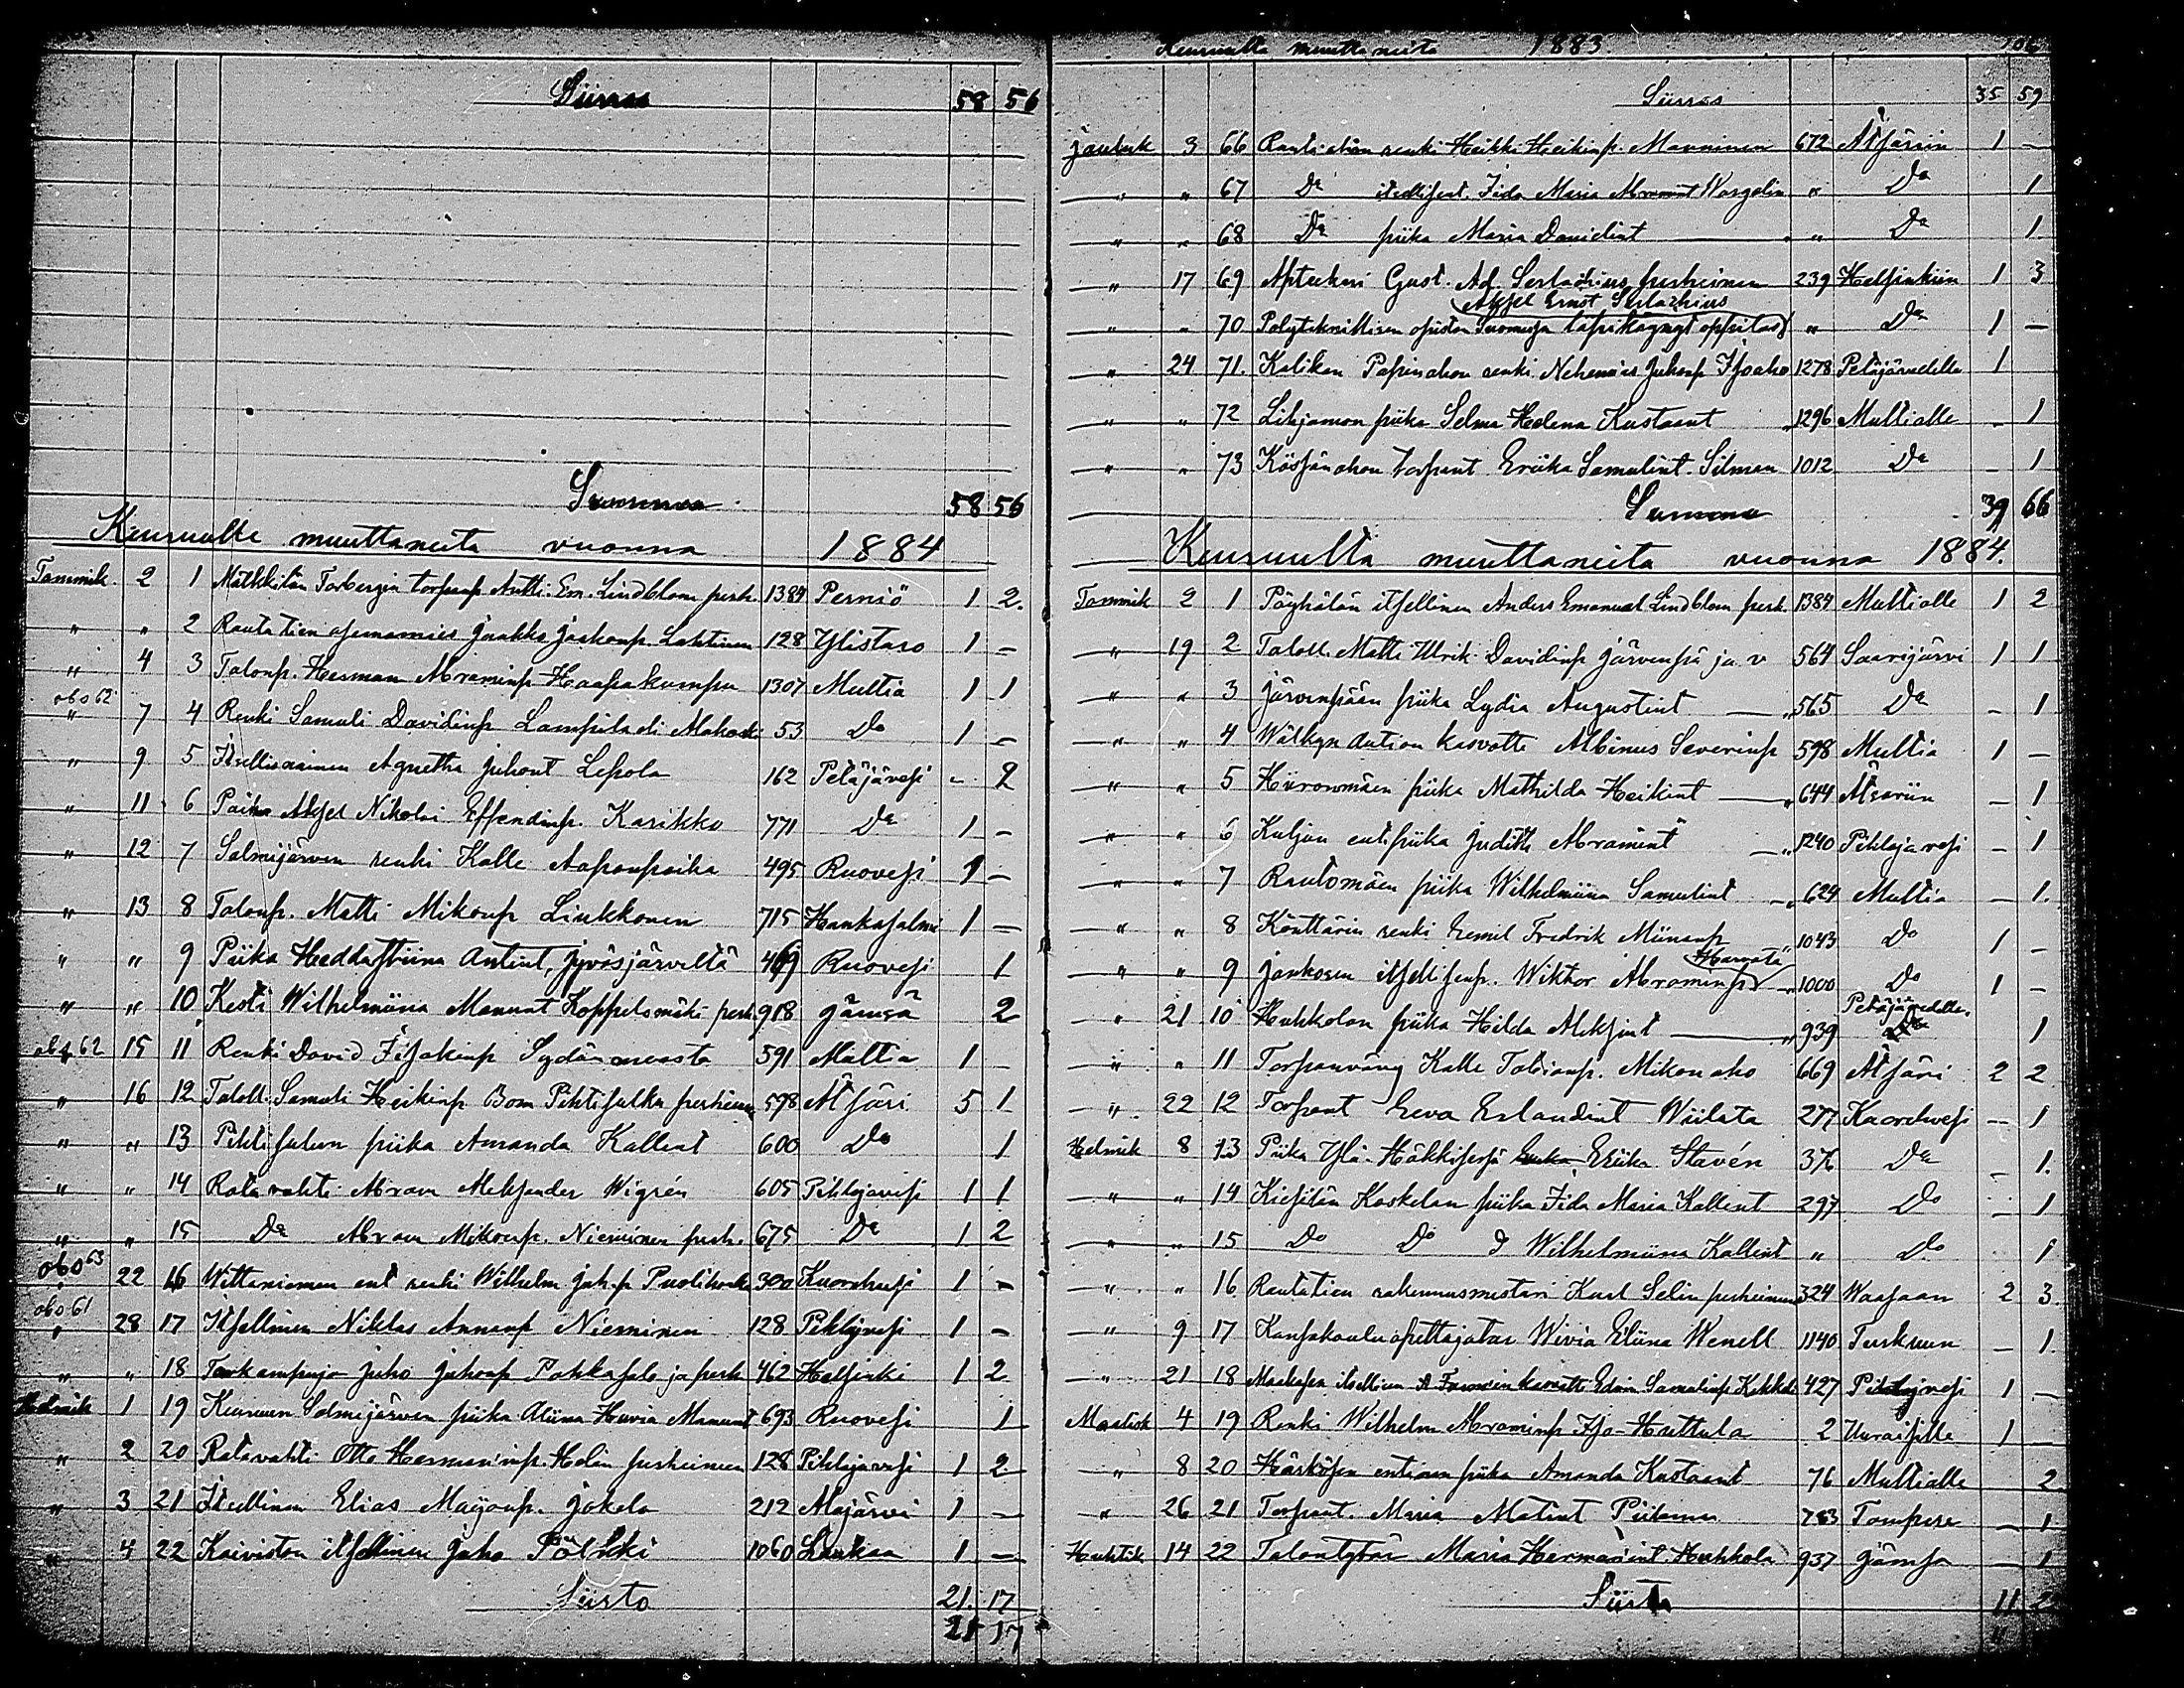 Siirros 58 56
Summa 58 56
Keuruulle muuttaneita vuonna 1884
Tammik. 2 1 Mätkkilän Torbergin torpanp Antti Em. Lindblom perh. 1384 Perniö 1 2.
" " 2 Rautatien asemamies Jaakko Jaakonp. Lahtinen 128 Ylistaro 1 –
" 4 3 Talonp. Herman Abraminp Haapakumpu 1307 Multia 1 1
obs 62 " 7 4 Renki Samuli Davidinp Lampila di Mahoski 53 Do 1 –
" 9 5 Itsellisnainen Agnetha Juhont Lepola 162 Petäjävesi – 2
" 11 6 Poika Aksel Nikolai Effendinp. Karikko 771 Do 1 –
" 12 7 Salmijärven renki Kalle Aaponpoika 495 Ruovesi 1 –
" 13 8 Talonp. Matti Mikonp Liukkonen 715 Hankasalmi 1 –
" " 9 Piika Hedda Stiina Antint, Jyväsjärveltä 469 Ruovesi 1
" " 10 Kesti Wilhelmiina Manunt Koppelomäki perh. 918 Jämsä 2
obs 62 15 11 Renki David Iisakinp Sydänmaasta 591 Multia 1 –
" 16 12 Taloll. Samuli Heikinp Bom Pihtisulku perheineen 598 Ätsäri 5 1
" " 13 Pihtisulun piika Amanda Kallent 600 Do 1
" " 14 Ratavahti Abram Aleksander Wigrén 605 Pihlajavesi 1 1
" " 15 Do Abram Mikonp. Nieminen perh. 675 Do 1 2
obs 63 " 22 16 Wittaniemen ent renki Wilhelm Juh.p Puolikoski 300 Kuorehvesi 1 –
obs 61 " 28 17 Itsellinen Niklas Annanp Nieminen 128 Pihljvesi 1 –
" " 18 Juho Juhonp Pakkasalo ja perh 462 Helsinki 1 2
Helmik 1 19 Keuruun Salmijärven piika Aliina Manunt 693 Ruovesi 1
" 2 20 Ratavahti Otto Hermaninp. Helin perheineen 128 Pihlajavesi 1 2
" 3 21 Itsellinen Elias Maijanp. Jokela 212 Alajärvi 1 –
" 4 22 Koiviston itsellinen Juho Pölkki 1060 Laukaa 1 –
Siirto 21. 17
21 17
Keuruulta muuttaneita 1883 106
Siirros 35 59
Jouluk 3 66 Rautiahon renki Heikki Heikinp. Manninen 672 Ätsäriin 1 –
" " 67 Do itsellisent. Iida Maria Abramint Wargelin " Do 1
" " 68 Do piika Maria Davidint " Do 1
" 17 69 Apteekari Gust. Ad. Serlachius perheineen 239 Helsinkiin 1 3
Aksel Ernst Serlachius
" " 70 Polyteknillisen opiston Suomessa läpikäynyt oppilas " Do 1 –
" 24 71. Kalikan Papinahon renki Nehemias Juhonp Isoaho 1278 Petäjävedelle 1
" " 72 Lihjamon piika Selma Helena Kustaant " 1296 Multialle – 1
" " 73 Kösfänahon torpant Eriika Samulint Silman 1012 Do – 1
Summa 39 66
Keuruulta muuttaneita vuonna 1884.
Tammik 2 1 Pöyhälän itsellinen Anders Emanuel Lindblom perh. 1384 Multialle 1 2
" 19 2 Taloll. Matti Ulrik Davidinp Järvenpä ja v 564 Saarijärvi 1 1
" " 3 Järvenpään piika Lydia Augustint " 565 Do – 1
" " 4 Wälkyn Aution kasvatti Albinus Severinp 598 Multia 1 –
" " 5 Hiironmäen piika Mathilda Heikint " 644 Ätsäriin – 1
" " 6 Kuljun ent. piika Judith Abramint " 1240 Pihlajavesi – 1
" " 7 Rautomäen piika Wilhelmiina Samulint " 624 Multia – 1.
" " 8 Könttärin renki Eemil Fredrik Miinanp " 1043 Do 1 –
" " 9 Jankosen itsellisenp. Wiktor Abraminp Harvata " 1000 Do 1 –
" 21 10 Huhkolan piika Hilda Aleksint " 939 Petäjävedelle. 1
" " 11 Torpanväv Kalle Tobianp. Mikonaho 669 Ätsäri 2 2
" 22 12 Torpant Eeva Erlandint Wiilata 277 Kuorehvesi – 1
Helmik 8 13 Piika Ylä-Häkkisessä Eriika Stavén 376 Do – 1.
" " 14 Kiesilän Koskelan piika Iida Maria Kallent 297 Do – 1
" " 15 Do Do Wilhelmiina Kallent " Do 1
" " 16 Rautatien rakennusmestari Karl Selin perheineen 324 Waasaan 2 3.
" 9 17 Kansakoulu opettajatar Wivia Eliina Wenell 1140 Turkuun – 1.
" 21 18 itsellisen kasvatti Edvin Samulinp 427 Pihlajvesi 1 –
Maalisk 4 19 Renki Wilhelm Abraminp Iso-Huttula 2 Uuraisille 1 –
" 8 20 Härkösen entinen piika Amanda Kustaant 76 Multialle 2
" 26 21 Torpant. Maria Matint Piilonen 783 Tampere – 1
Huhtik 14 22 Talontytär Maria Hermanint Huhkola 937 Jämsä – 1
Siirto 11 2